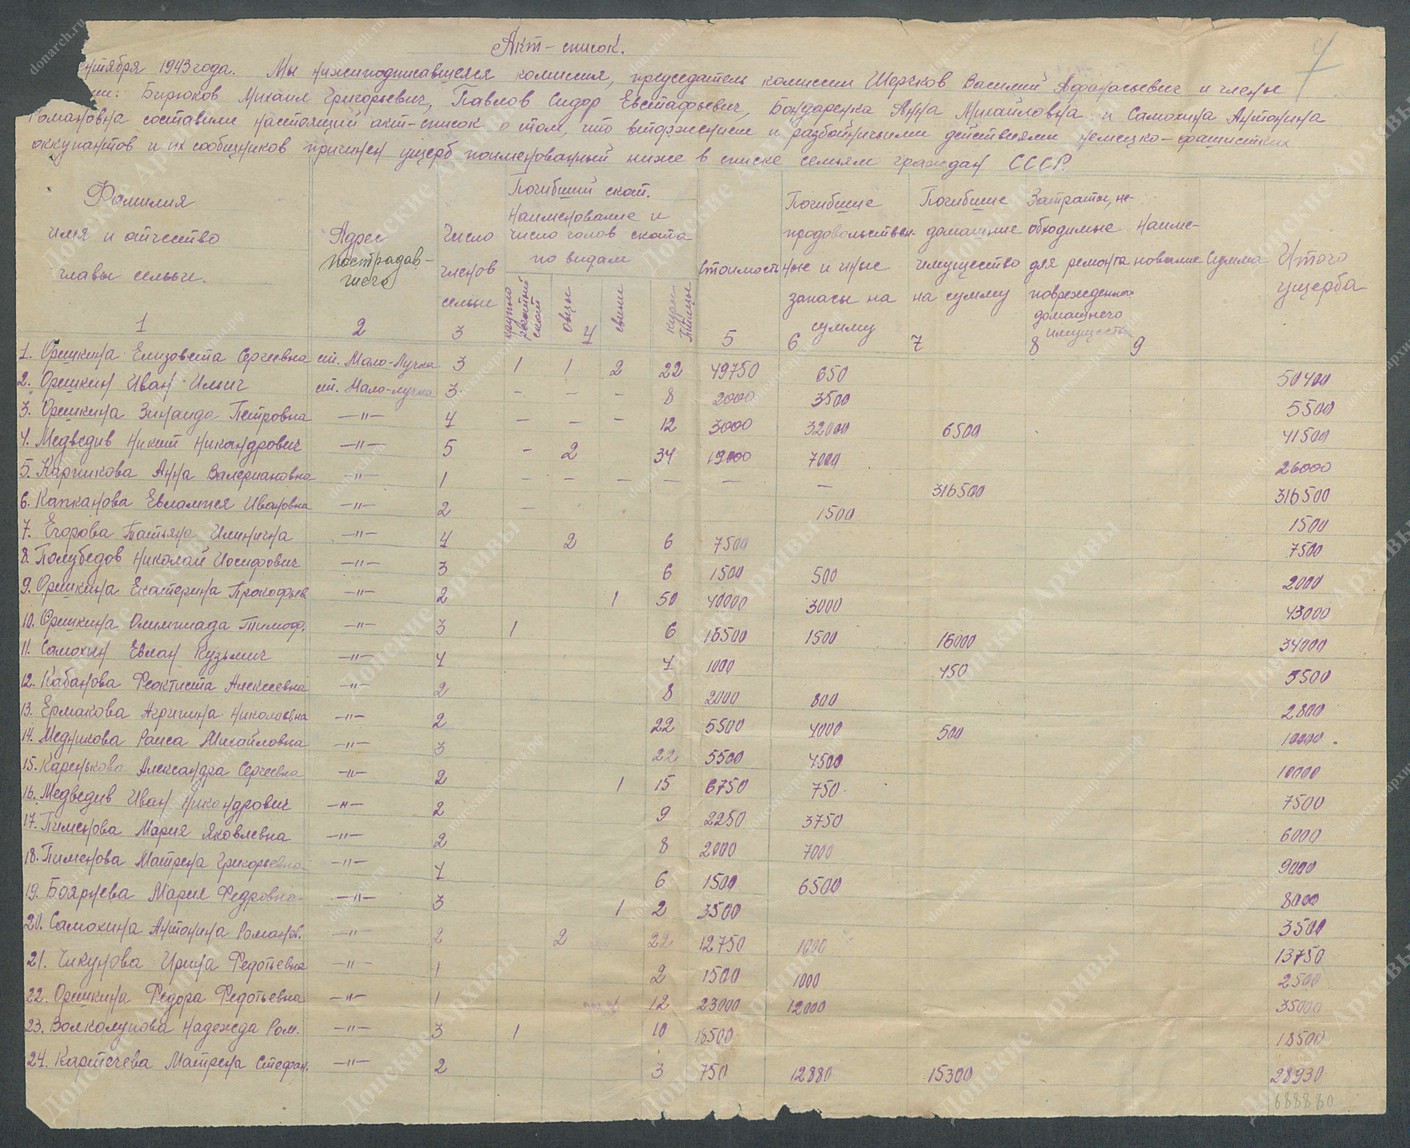 Акт-список.
нтября 1943 года. Мы нижеподписавшиеся комиссия, председатель комиссии Василий Афанасьевич и члены
Бирюков Михаил Григорьевич, Павлов Сидор Евстафьевич, Бондаренка Анна Михайловна и Самохина Антонина
Романовна составили настоящий акт-список о том, что вторжением и разбойничьими действиями немецко-фашистких
оккупантов и их сообщников причинен ущерб поименованный ниже в списке семьям граждан СССР.
Фамилия имя и отчество главы семьи. 1
Адрес пострадав-шего 2
Число членов семьи 3
Погибший скот. Наименование и число голов скота по видам 4
крупно рогатый скот овцы свиньи птицы
стоимость 5
Погибшие продовольствен-ные и иные запасы на сумму 6
Погибшие домашние имущество на сумму 7
Затраты, не-обходимые для ремонта поврежденного домашнего имущества 8
Наиме-нование 9
Сумма
Итого ущерба
1. Орешкина Елизовета Сергеевна ст. Мало-Лучка 3 1 1 2 22 49750 650 50400
2. Орешкин Иван Ильич ст. Мало-Лучка 3 - - - 8 2000 3500 5500
3. Орешкина Зинаида Петровна —"— 4 - - 12 3000 32000 6500 41500
4. Медведив Никандрович —"— 5 - 2 34 19000 7000 26000
5. Каргикова Анна Валериановна —"— 1 - - - - - - 316500 316500
6. Капканова Евлампея Ивановна —"— 2 - 1500 1500
7. Егорова Татьяна Илинична —"— 4 2 6 7500 7500
8. Полубедов Николай Иосифович —"— 3 6 1500 500 2000
9. Орешкина Екатерина Прокофьев —"— 2 1 50 40000 3000 43000
10. Орешкина Олимпиада Тимоф. —"— 3 1 6 16500 1500 16000 34000
11. Самохин Евлан Кузьмич —"— 4 4 1000 450 5500
12. Кабанова Феоктиста Алексеевна —"— 2 8 2000 800 2800
13. Ермакова Агрипина Николаевна —"— 2 22 5500 4000 500 10000
14. Медникова Раиса Михайловна —"— 3 22 5500 4500 10000
15. Каренькова Александра Сергеевна —"— 2 1 15 6750 750 7500
16. Медведив Иван Никандрович —"— 2 9 2250 3750 6000
17. Пименова Мария Яковлевна —"— 2 8 2000 7000 9000
18. Пименова Матрена Григорьевна —"— 4 6 1500 6500 8000
19. Боярнева Мария Федровна —"— 3 1 2 3500 3500
20. Самохина Антонина Романов. —"— 2 2 22 12750 1000 13750
21. Чикунова Ирина Федотьевна —"— 1 2 1500 1000 2500
22. Орешкина Федора Федотьевна —"— 1 12 23000 12000 35000
23. Надежда Ром. —"— 3 1 10 18500 18500
24. Картечева Матрена Стефан. —"— 2 3 750 12880 15300 28930
688880